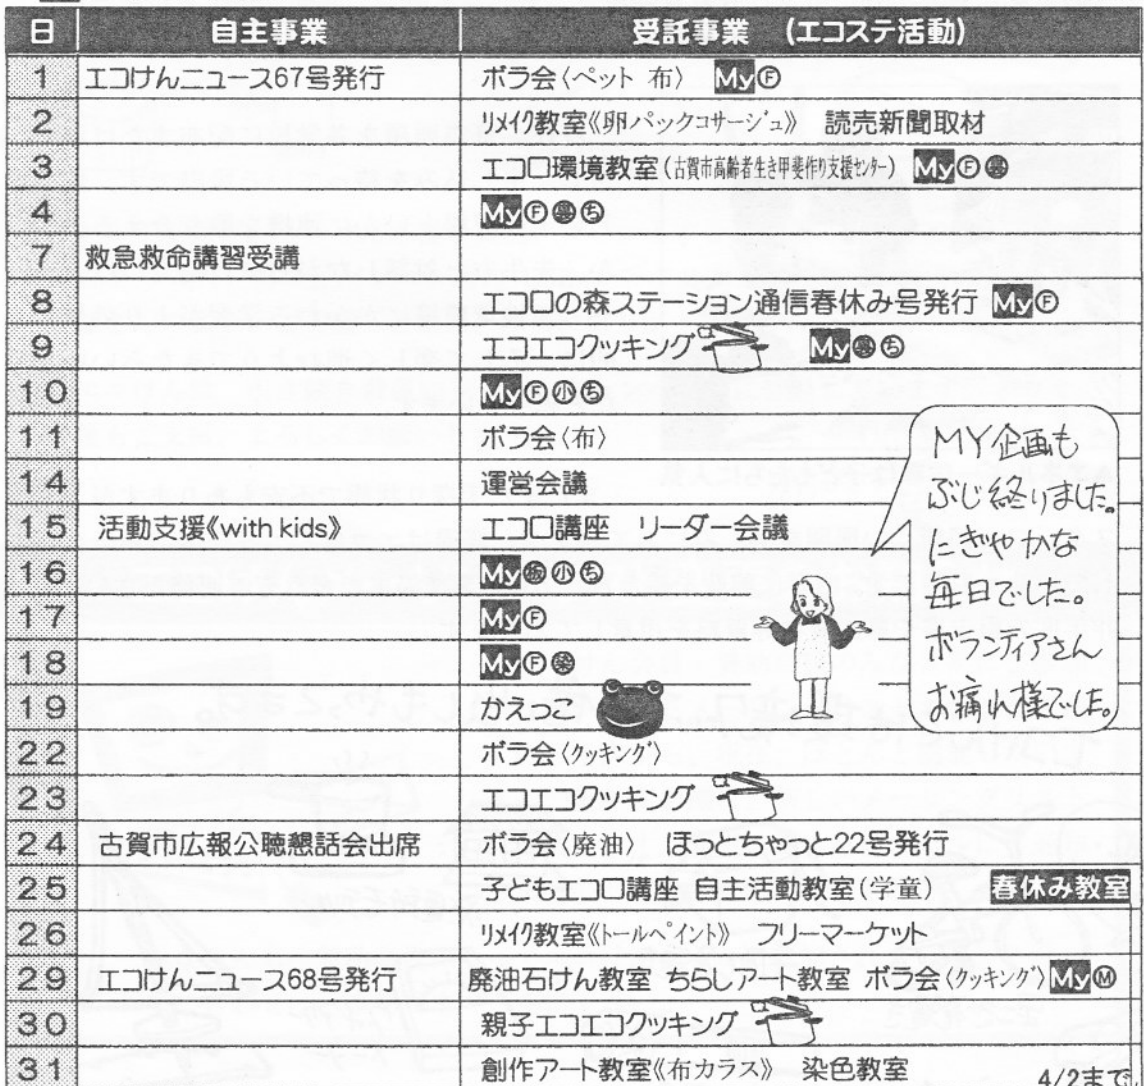 日 自主事業 受託事業 (エコステ活動)
1 エコけんニュース67号発行 ボラ会〈ペット 布〉 My Ⓕ
2 リメイク教室《卵パックコサージュ》 読売新聞取材
3 エコロ環境教室(古賀市高齢者生き甲斐作り支援センター) My Ⓕ
4 My Ⓕ ち
7 救急救命講習受講
8 エコロの森ステーション通信春休み号発行 My Ⓕ
9 エコエコクッキング My ち
10 My Ⓕ 小 ち
11 ボラ会〈布〉
14 運営会議
15 活動支援《with kids》 エコロ講座 リーダー会議
16 My 小 ち
17 My Ⓕ
18 My Ⓕ 染
19 かえっこ
22 ボラ会〈クッキング〉
23 エコエコクッキング
24 古賀市広報公聴懇話会出席 ボラ会〈廃油〉 ほっとちゃっと22号発行
25 子どもエコロ講座 自主活動教室(学童) 春休み教室
26 リメイク教室《トールペイント》 フリーマーケット
29 エコけんニュース68号発行 廃油石けん教室 ちらしアート教室 ボラ会〈クッキング〉 My Ⓜ
30 親子エコエコクッキング
31 創作アート教室《布カラス》 染色教室 4/2まで
MY企画も
ぶじ終りました。
にぎやかな
毎日でした。
ボランティアさん
お疲れ様でした。